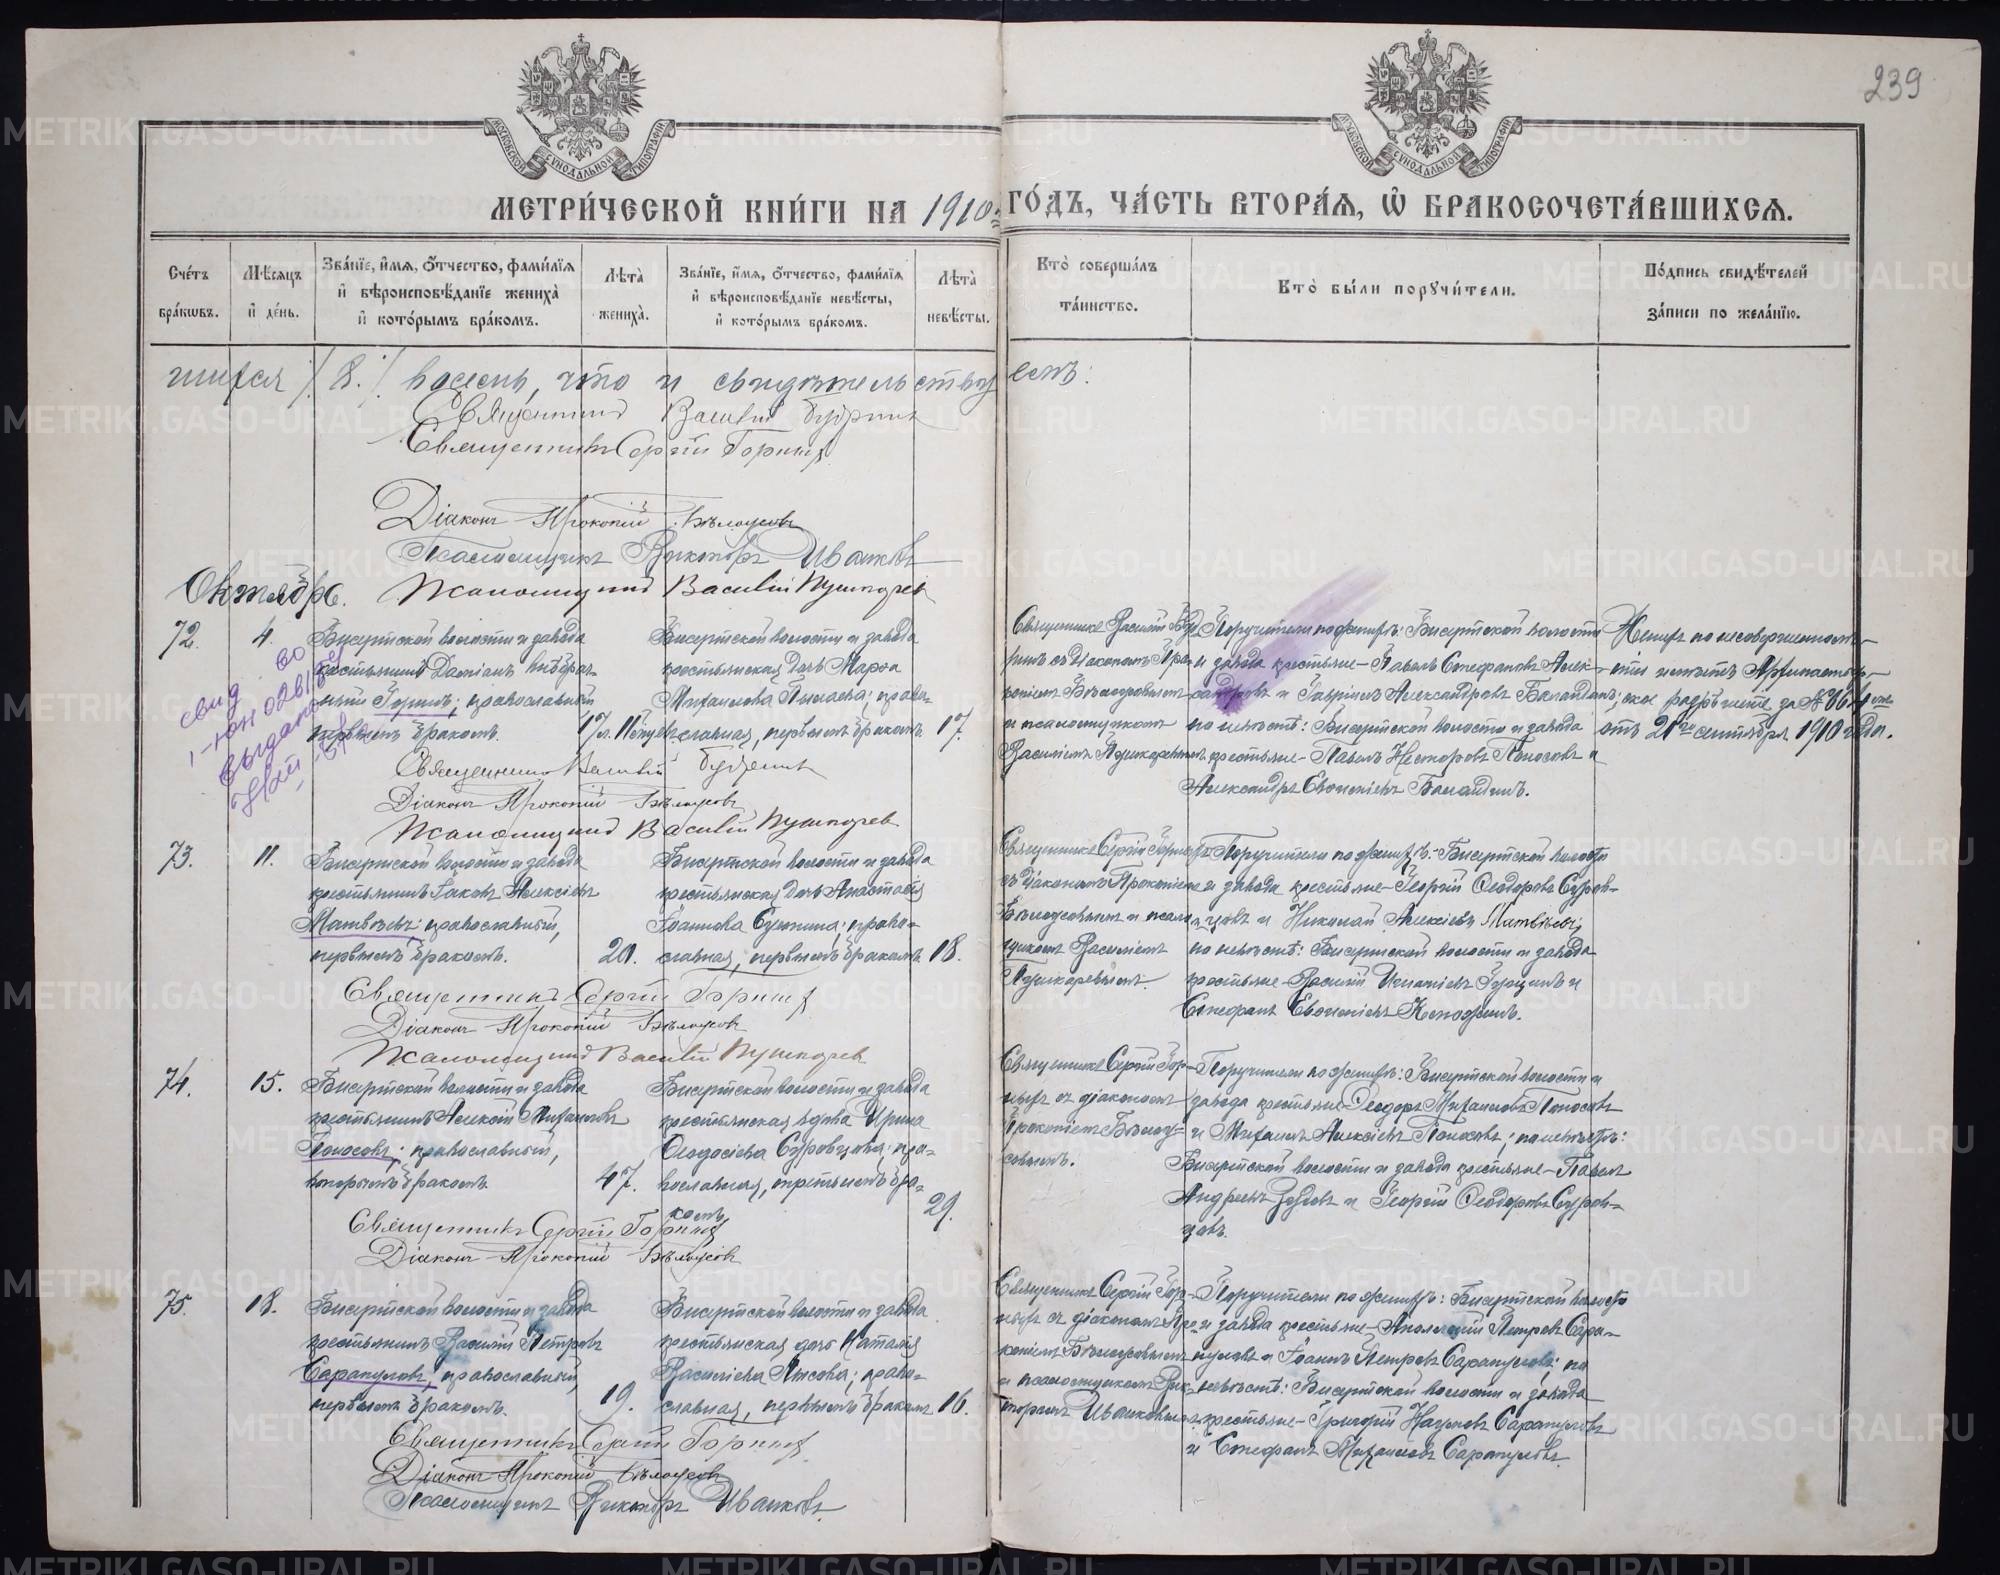 239
МЕТРИ́ЧЕСКОЙ КНИ́ГИ НА 1910 ГО́ДЪ, ЧА́СТЬ ВТОРА́Я, Ѽ БРАКОСОЧЕТА́ВШИХСЯ.
Сче́тъ бра́кѡвъ.
Мѣ́сяцъ и҆ де́нь.
Зва́нїе, и҆́мя, ѻ҆́тчество, фами́лїя и҆ вѣроисповѣ́данїе жениха̀ и҆ кото́рымъ бра́комъ.
Лѣ́та̀ жениха̀.
Зва́нїе, и҆́мя, ѻ҆́тчество, фами́лїя и҆ вѣроисповѣ́данїе невѣ́сты, и҆ кото́рымъ бра́комъ.
Лѣ́та̀ невѣ́сты.
Кто̀ соверша́лъ та́инство.
Кто̀ бы́ли порꙋчи́тели.
По́дпись свидѣ́телей за́писи по жела́нїю.
шихся /8./ восемь, что и свидѣтельствуемъ:
Священникъ Василій
Священникъ Сергій Горныхъ
Діаконъ Прокопій Бѣлоусовъ
Псаломщикъ Викторъ Иванковъ
Октябрь. Псаломщикъ Василій Пушкаревъ
72.
4.
Бисертской волости и завода
крестьянинъ Даміанъ
Горинъ; православный
первымъ бракомъ.
17 л.
Бисертской волости и завода
крестьянская дочь Марѳа
Михаилова; право-
славная, первымъ бракомъ.
17.
Священникъ Василій
ринъ съ діакономъ Про-
копіемъ Бѣлоусовымъ
и псаломщикомъ
Василіемъ Пушкаревымъ
Поручители по женихѣ: Бисертской волости
и завода крестьяне – Павелъ Стефановъ Алек-
сандровъ и Гавріилъ Александровъ Баландинъ;
по невѣстѣ: Бисертской волости и завода
крестьяне – Павелъ Несторовъ Поносовъ и
Александръ Евѳиміевъ Баландинъ.
Женихъ по несовершеннолѣ-
тію имѣетъ Архипастыр-
ское разрѣшеніе за №
отъ 21го сентября 1910 года.
свид. во
выдано
Священникъ Василій
Діаконъ Прокопій Бѣлоусовъ
Псаломщикъ Василій Пушкаревъ
73.
11.
Бисертской волости и завода
крестьянинъ Іаковъ Алексіевъ
Матвѣевъ; православный,
первымъ бракомъ.
20.
Бисертской волости и завода
крестьянская дочь Анастасія
Іоаннова; право-
славная, первымъ бракомъ
18.
Священникъ Сергій Горныхъ
съ діакономъ Прокопіемъ
Бѣлоусовымъ и псалом-
щикомъ Василіемъ
Пушкаревымъ.
Поручители по женихѣ: Бисертской волости
и завода крестьяне – Георгій Ѳеодоровъ Суров-
цовъ и Николай Алексіевъ Матвѣевъ;
по невѣстѣ: Бисертской волости и завода
крестьяне – Василій Игнатіевъ и
Стефанъ Евѳиміевъ
Священникъ Сергій Горныхъ
Діаконъ Прокопій Бѣлоусовъ
Псаломщикъ Василій Пушкаревъ
74.
15.
Бисертской волости и завода
крестьянинъ Алексій Михаиловъ
Поносовъ; православный,
вторымъ бракомъ.
47.
Бисертской волости и завода
крестьянская вдова Ирина
Ѳеодосіева Суровцова; пра-
вославная, третьимъ бра-
комъ
29.
Священникъ Сергій Гор-
ныхъ съ діакономъ
Прокопіемъ Бѣлоу-
совымъ.
Поручители по женихѣ: Бисертской волости и
завода крестьяне Ѳеодоръ Михаиловъ Поносовъ
и Михаилъ Алексіевъ Поносовъ; по невѣстѣ:
Бисертской волости и завода крестьяне – Павелъ
Андреевъ и Георгій Ѳеодоровъ Суров-
цовъ.
Священникъ Сергій Горныхъ
Діаконъ Прокопій Бѣлоусовъ
75.
18.
Бисертской волости и завода
крестьянинъ Василій Петровъ
Сарапуловъ, православный,
первымъ бракомъ.
19.
Бисертской волости и завода
крестьянская дочь Наталія
Василіева; право-
славная, первымъ бракомъ
16.
Священникъ Сергій Гор-
ныхъ съ діакономъ Про-
копіемъ Бѣлоусовымъ
и псаломщикомъ Вик-
торомъ Иванковымъ
Поручители по женихѣ: Бисертской волости
и завода крестьяне – Аполлоній Петровъ Сара-
пуловъ и Іоаннъ Петровъ Сарапуловъ; по
невѣстѣ: Бисертской волости и завода
крестьяне – Григорій Наумовъ Сарапуловъ
и Стефанъ Михаиловъ Сарапуловъ.
Священникъ Сергій Горныхъ
Діаконъ Прокопій Бѣлоусовъ
Псаломщикъ Викторъ Иванковъ
METRIKI.GASO-URAL.RU